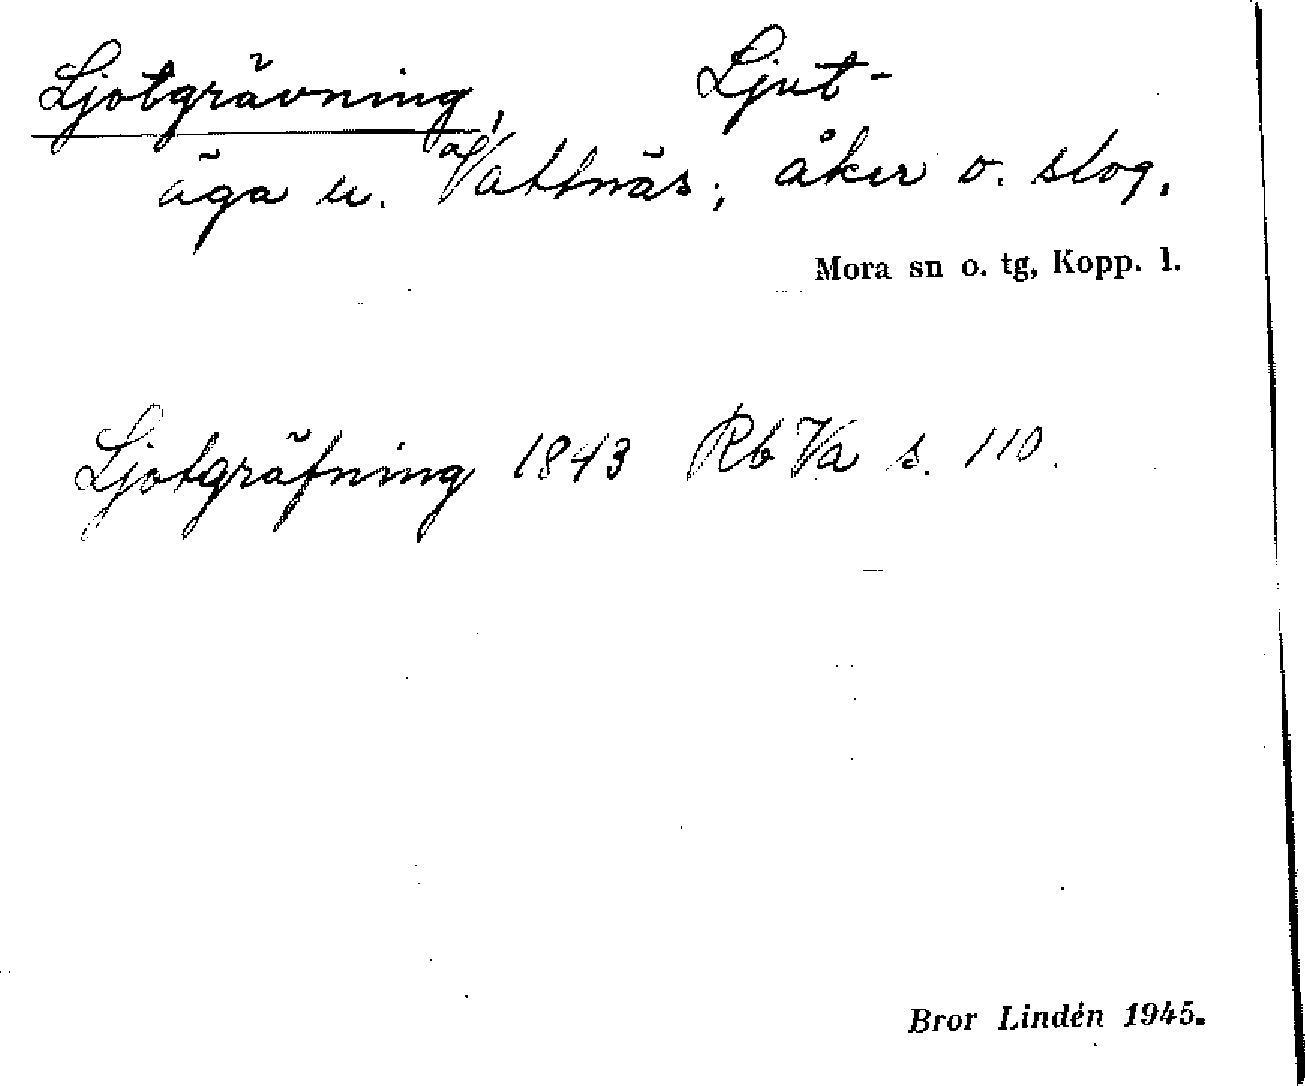 Ljotgrävning, Ljut-
äga u. å Vattnäs; åker o. skog.
Mora sn o. tg, Kopp. l.
Ljotgräfning 1843 Rb Va s. 110.
Bror Lindén 1945.